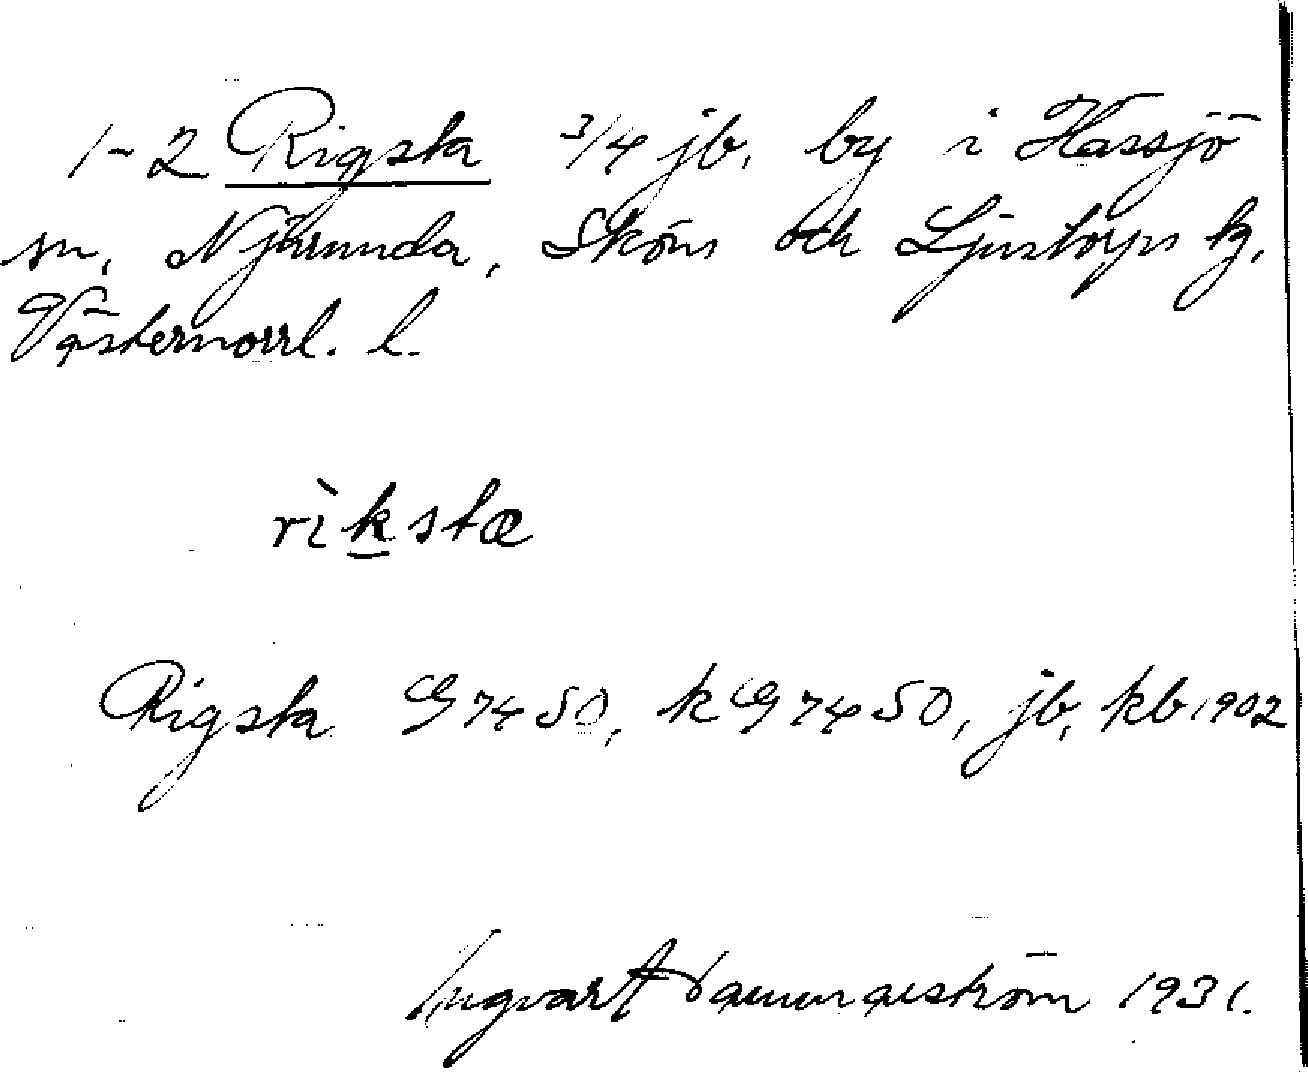 1-2 Rigsta 3/4 jb. by i Hässjö
sn, Njurunda, Sköns och Ljustorps tg,
Västernorrl. l.
rìkstæ
Rigsta G 7450, k G 7450, jb, kb 1902
Ingvart 1931.